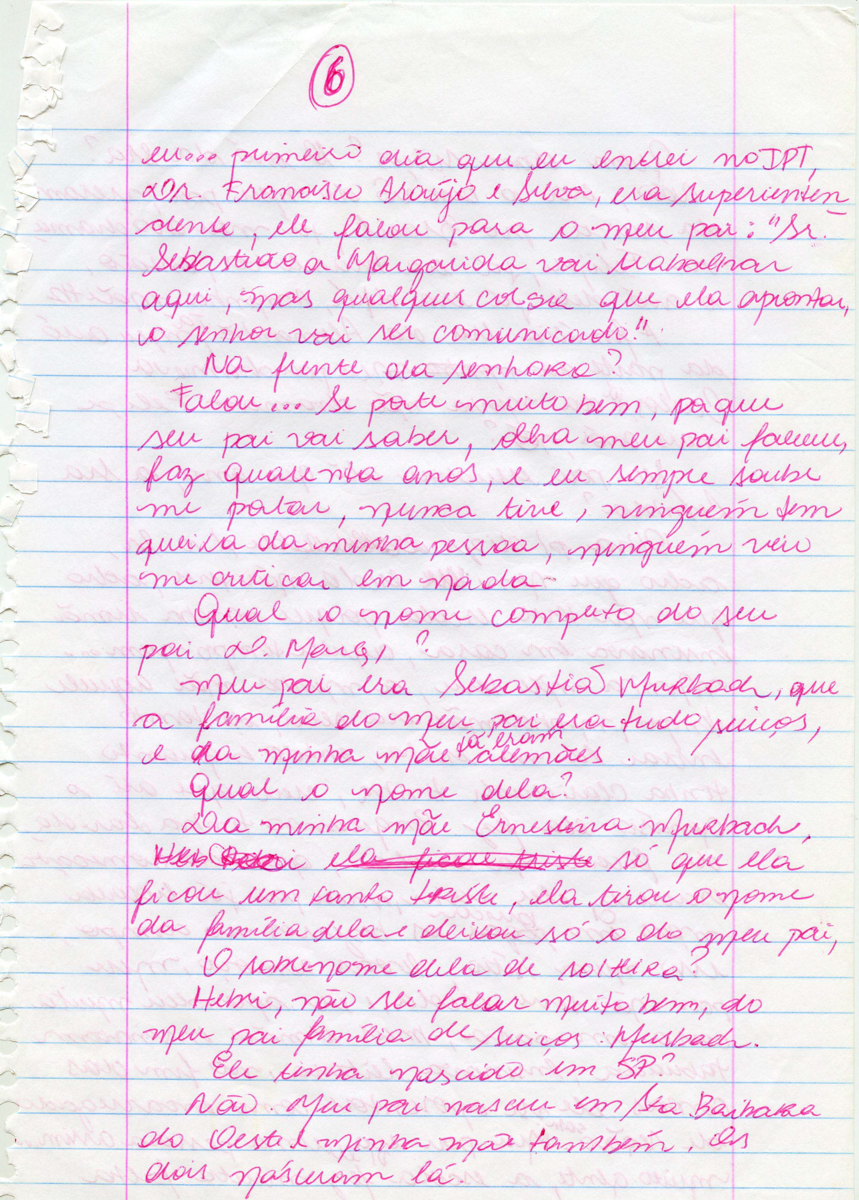 6
eu... primeiro dia que eu entrei no IPT,
Dr. Francisco Araújo e Silva, era superienten
dente, ele falou para o meu pai: "Sr.
Sebastião a Margarida vai trabalhar
aqui, mas qualquer coisa que ela aprontar,
o senhor vai ser comunicado."
Na frente da senhora?
Falou... Se porte muito bem, pa que
seu pai vai saber, olha meu pai faleceu,
faz quarenta anos, e eu sempre soube
me portar, nunca tive, ninguém tem
queixa da minha pessoa, ninguém veio
me criticar em nada
Qual o nome completo do seu
pai D. Marg,?
Meu pai era Sebastião Murbach, que
a família do meu pai era tudo suiços,
e da minha mãe já eram alemães.
Qual o nome dela?
Da minha mãe Ernestina Murbach,
ela ficou triste só que ela
ficou um tanto triste, ela tirou o nome
da família dela e deixou só o do meu pai,
O sobrenome dela de solteira?
Hebri, não sei falar muito bem, do
meu pai família de suiços: Murbach.
Ele tinha nascido em SP?
Não. Meu pai nasceu em Sta. Barbara
do Oeste e minha mãe também. Os
dois nasceram lá.